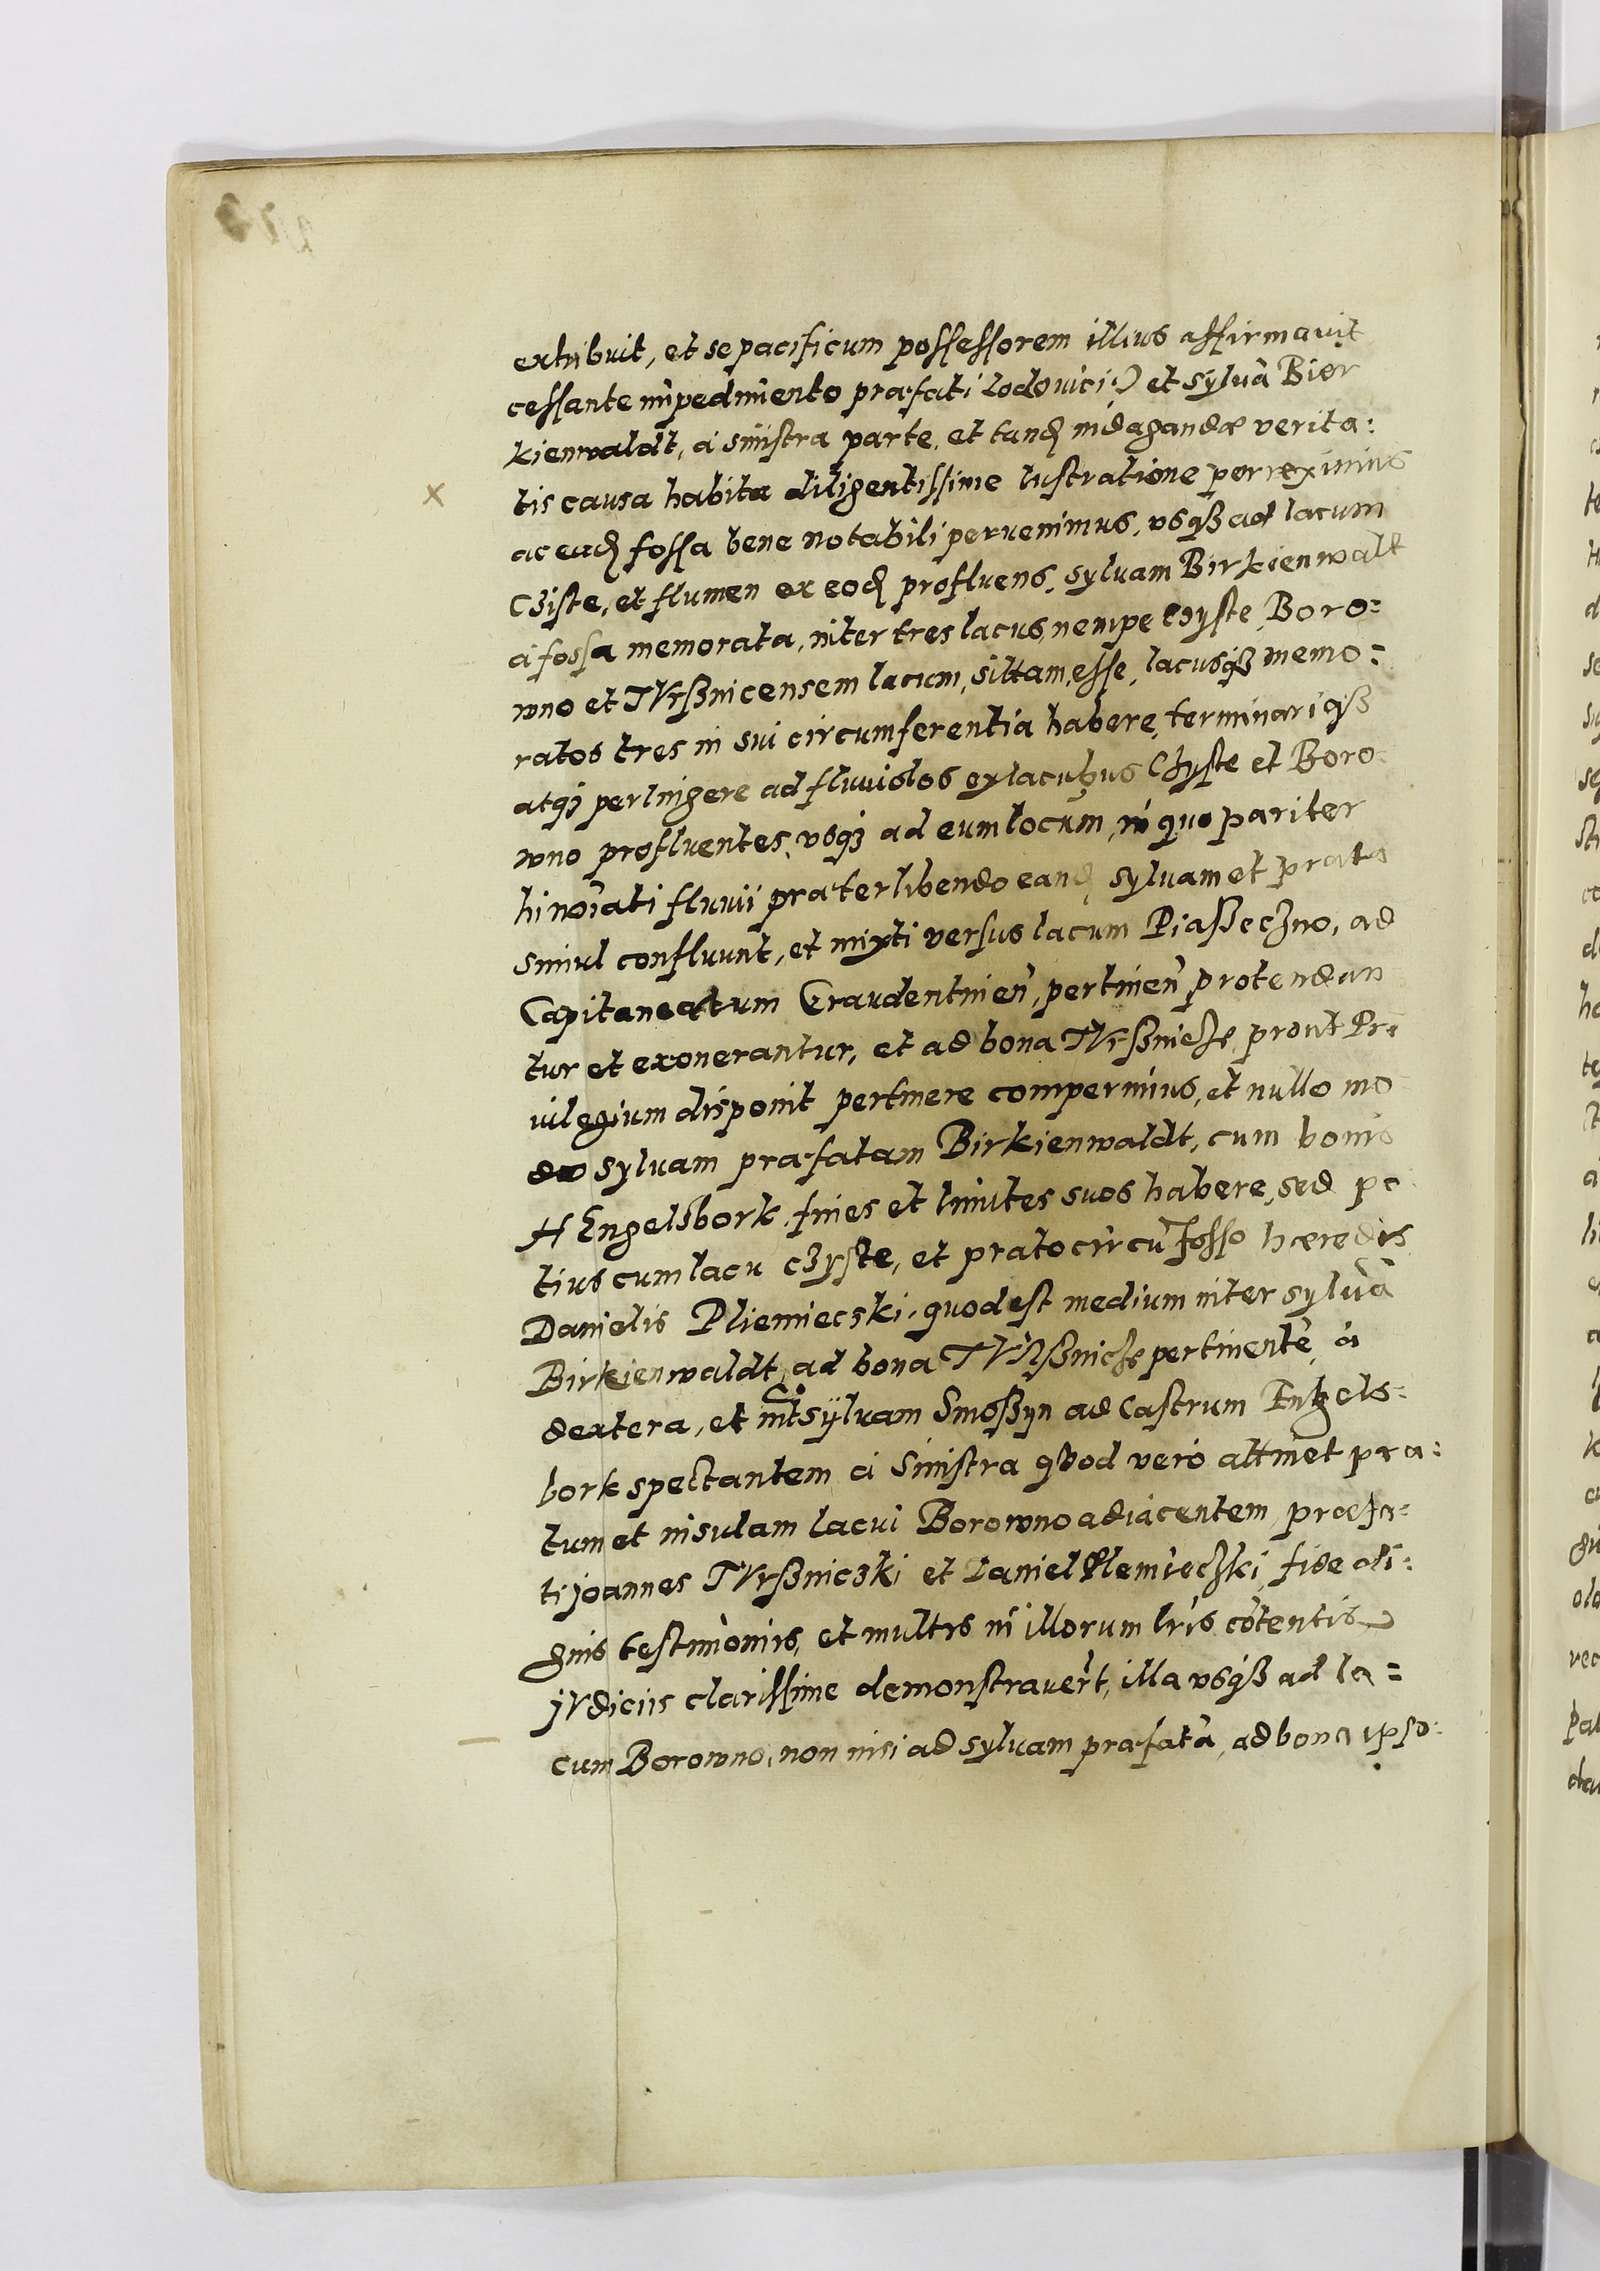 exhibuit, et se pacificum possessorem illius affirmavit
cessante impedimento præfati Lodovici:) et sylvã Bier
kienwaldt, à sinistra parte, et tandẽ indagandæ verita:
tis causa habita diligentissime lustratione perreximus
ac eadẽ fossa bene notabili pervenimus, vsqß ad lacum
Cziste, et flumen ex eodẽ profluens, sylvam Birkienwalt
à fossa memorata, inter tres lacus, nempe Czyste, Boro=
wno et TVrßnicensem lacum, sittam, esse, lacusqß memo=
ratos tres in sui circumferentia habere, terminariqß
atqz pertingere ad fluviolos ex lacubus Chyste et Boro
wno profluentes, vsqz ad eum locum, in quo pariter
hi nõiati fluvii præterlibendo eandẽ sylvam et prata
simul confluunt, et mixti versus lacum Piaßeczno, ad
Capitaneatum Graudentinen̄, pertinen̄ protendun
tur et exonerantur, et ad bona TVrßnicze, prout Pri
uilegium disponit pertinere comperimus, et nullo mo
do sylvam præfatam Birkienwaldt, cum bonis
H Engelsbork, fines et limites suos habere, sed po
tius cum lacu czyste, et prato circũfosso hæredis
Danielis Pliemiecski, quod est medium inter sylvã
Birkienwaldt, ad bona TVrßnicze pertinentẽ, à
dextera, et int sÿlvam Smoßyn ad Castrum Engels=
bork spectantem à sinistra quod vero attinet pra:
tum et insulam lacui Borowno adiacentem, præfa=
ti joannes TVrßniczki et Daniel Plemieczki, fide di:
gnis testimoniis, et multis in illorum lr̃is cõtentis
jVdiciis clarissime demonstraver̃t, illa vsqß ad la=
cum Borowno, non nisi ad sylvam præfatã, ad bona ipso: